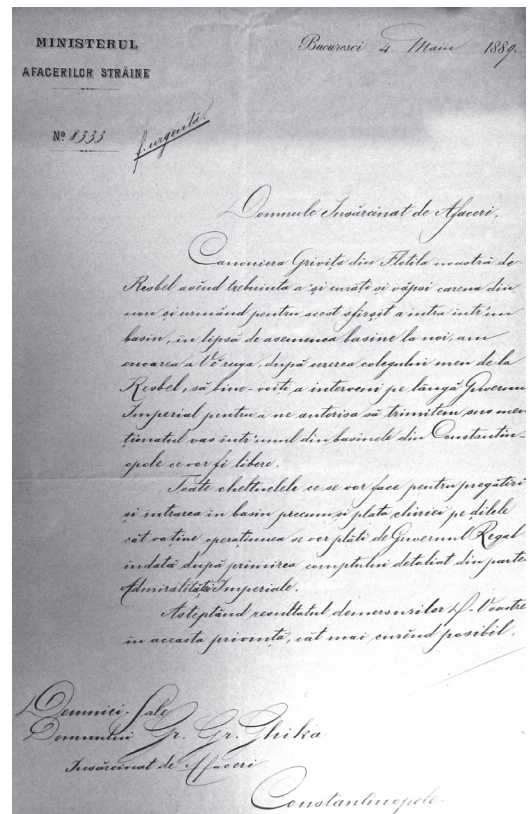 MINISTERUL
AFACERILOR STRĂINE
Bucuresci 4 Maiu 1889.
Nº 8333
f. urgentă.
Domnule Insărcinat de Afaceri,
Canoniera Grivița din Flotila noastră de
Resbel avênd trebuința a 'și curăți și văpsi carena din
nou și urmând pentru acest sfîrșit a intra intr'un
basin, in lipsă de asemenea basine la noi, am
onoarea a Vĕ ruga, după cererea colegului meu de la
Resbel, să bine-voiți a interveni pe lângă Guvernul
Imperial pentru a ne autorisa să trimitem sus men-
ționatul vas intr'unul din basinele din Constantin-
opole ce vor fi libere.
Toate cheltuelele ce se vor face pentru pregătiri
și intrarea in basin precum și plata chiriei pe dilele
cât va tine operațiunea se vor plăti de Guvernul Regal
indată după primirea comptului detaliat din partea
Admiralității Imperiale.
Asteptând resultatul demersurilor D-Voastre
in aceasta privință, cât mai curênd posibil.
Domniei-Sale
Domnului Gr. Gr. Ghika
Insărcinat de Afaceri
Constantinopole.